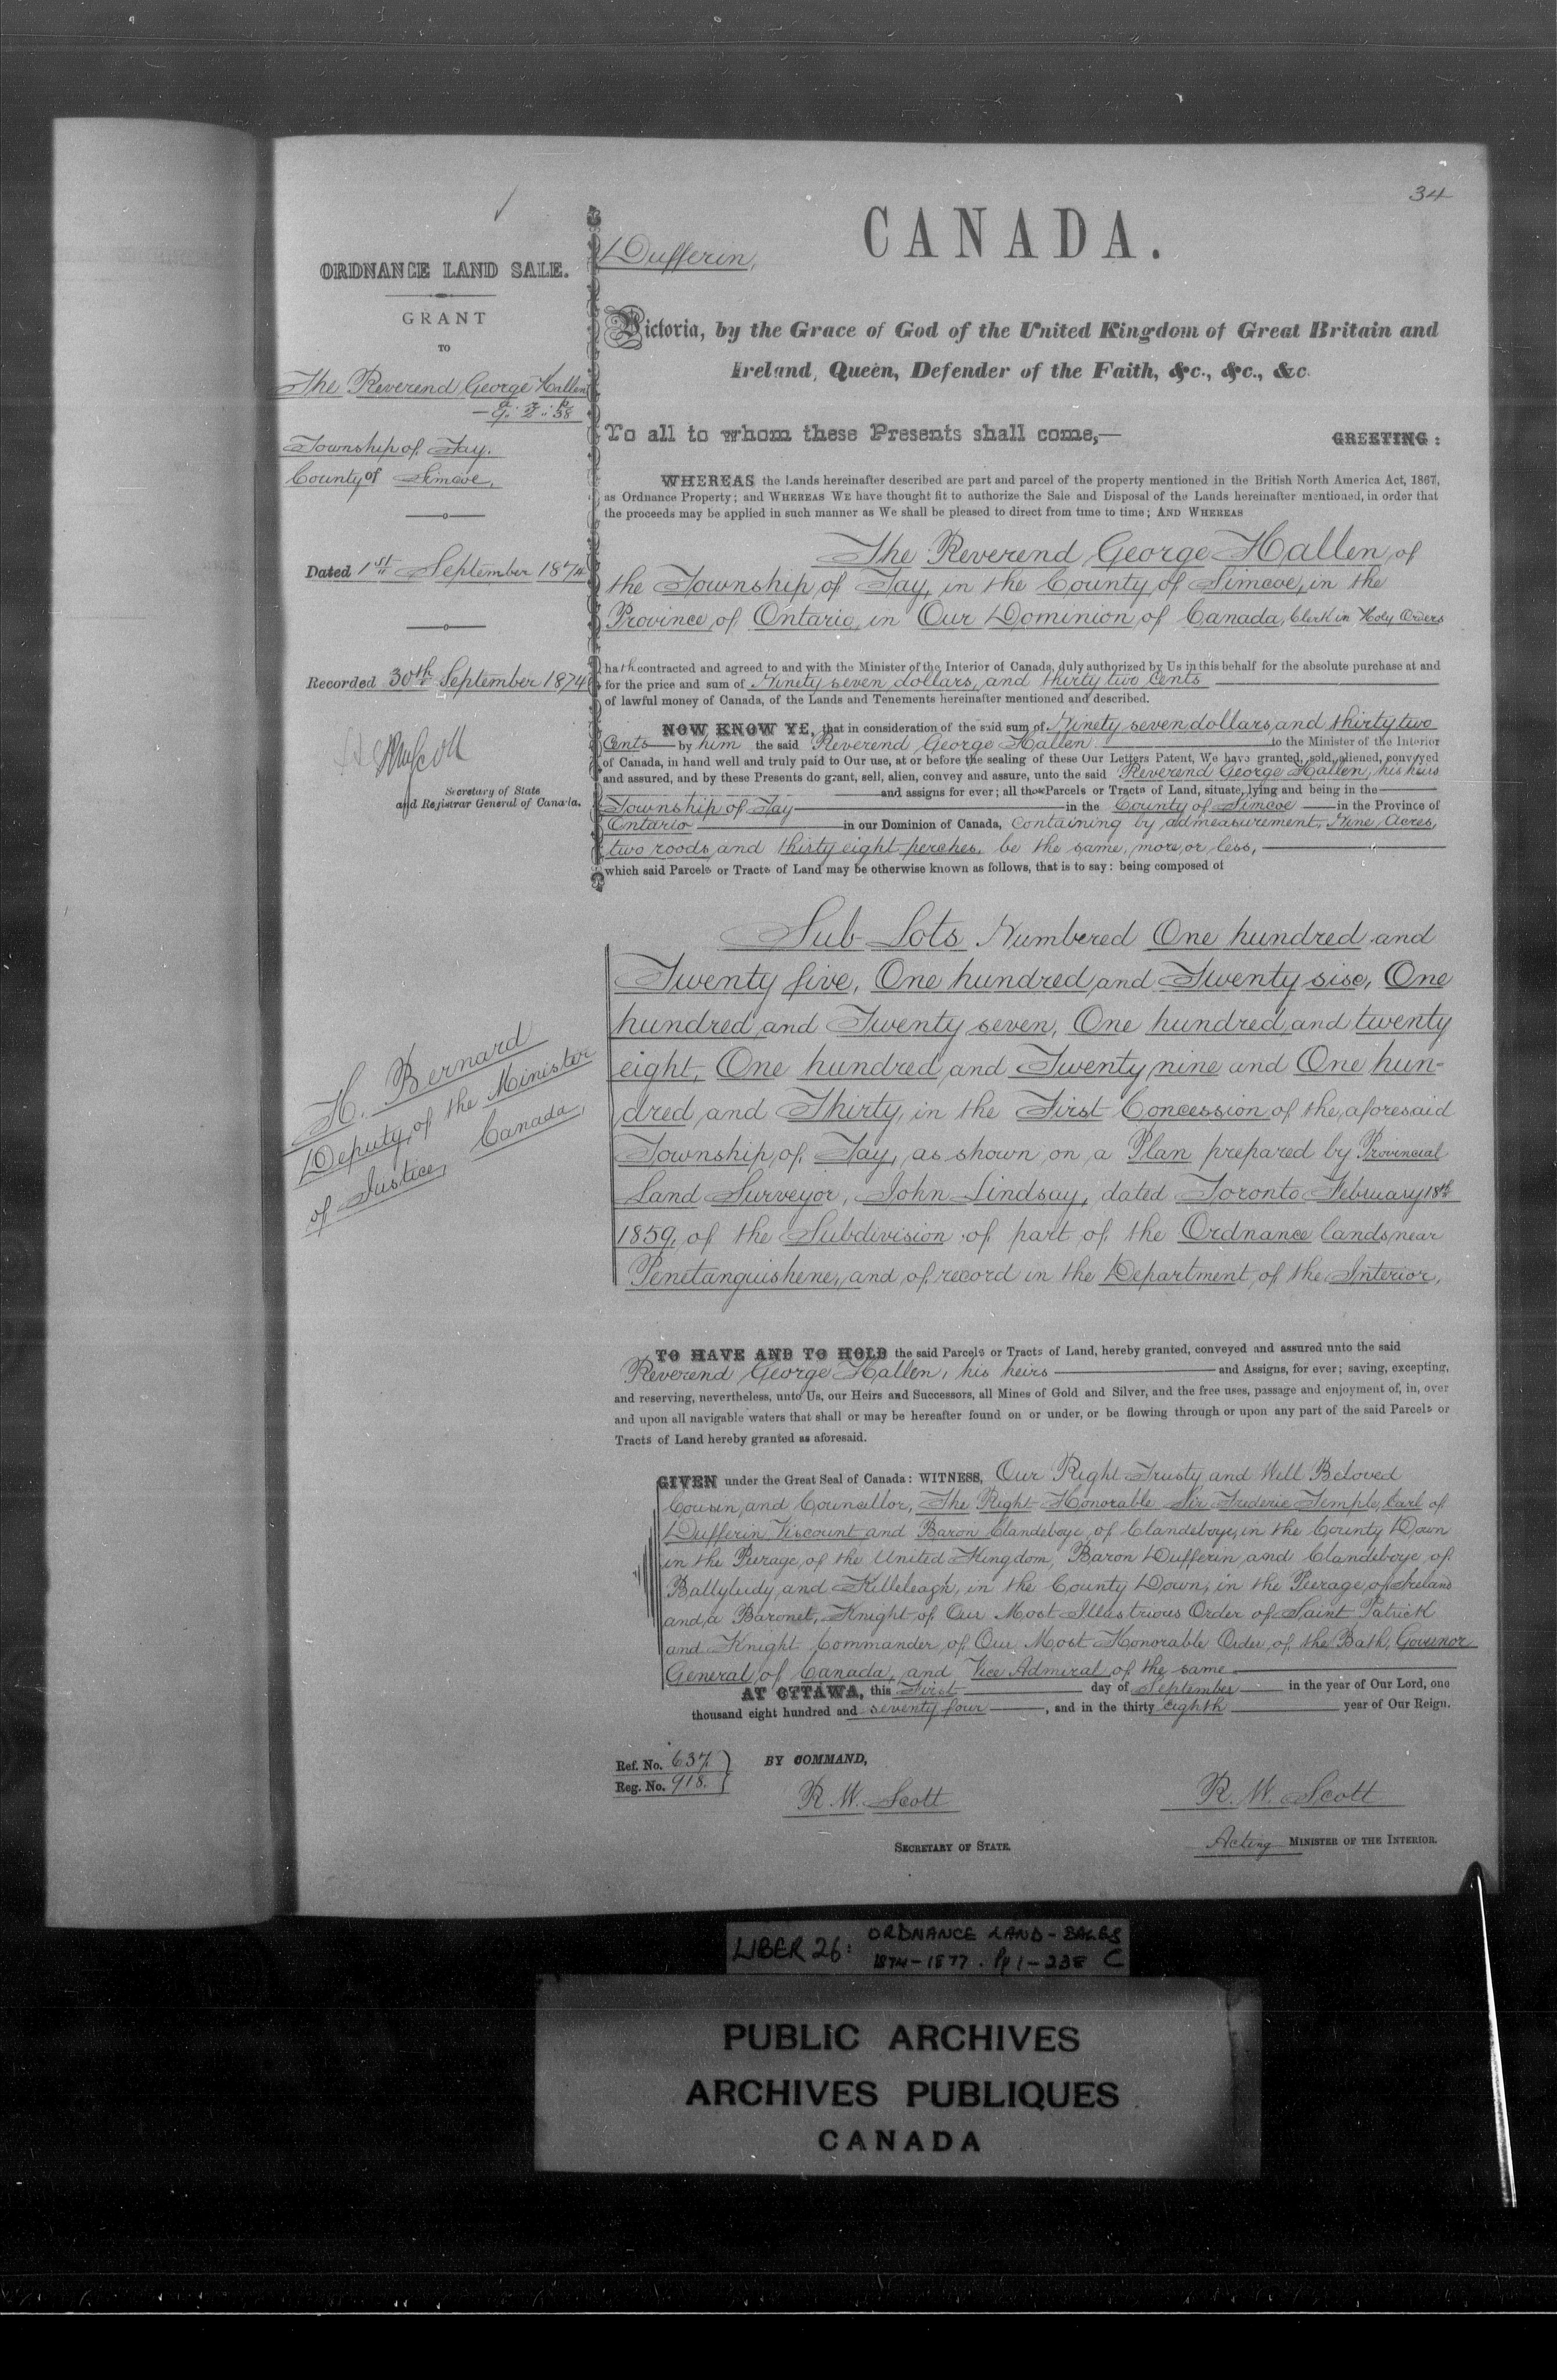 34
CANADA.
Dufferin,
ORDNANCE LAND SALE.
GRANT
TO
The Reverend George Hallen
a r p
9 .. 2 .. 38
Township of Tay.
County of Simcoe.
Dated 1st September 1874
Recorded 30th September 1874
Secretary of State
and Registrar General of Canada.
H. Bernard
Deputy of the Minister
of Justice, Canada,
Victoria, by the Grace of God of the United Kingdom of Great Britain and
Ireland, Queen, Defender of the Faith, &c., &c., &c.
To all to whom these Presents shall come,— GREETING:
WHEREAS the Lands hereinafter described are part and parcel of the property mentioned in the British North America Act, 1867,
as Ordnance Property; and WHEREAS WE have thought fit to authorize the Sale and Disposal of the Lands hereinafter mentioned, in order that
the proceeds may be applied in such manner as We shall be pleased to direct from time to time; AND WHEREAS
The Reverend George Hallen, of
the Township of Tay, in the County of Simcoe, in the
Province of Ontario, in Our Dominion of Canada, Clerk in Holy Orders
hath contracted and agreed to and with the Minister of the Interior of Canada, duly authorized by Us in this behalf for the absolute purchase at and
for the price and sum of Ninety seven dollars, and thirty two Cents
of lawful money of Canada, of the Lands and Tenements hereinafter mentioned and described.
NOW KNOW YE, that in consideration of the said sum of Ninety seven dollars, and thirty two
Cents by him the said Reverend George Hallen to the Minister of the Interior
of Canada, in hand well and truly paid to Our use, at or before the sealing of these Our Letters Patent, We have granted, sold, aliened, conveyed
and assured, and by these Presents do grant, sell, alien, convey and assure, unto the said Reverend George Hallen, his heirs
and assigns for ever; all those Parcels or Tracts of Land, situate, lying and being in the
Township of Tay in the County of Simcoe in the Province of
Ontario in our Dominion of Canada, containing by admeasurement, Nine Acres,
two roods, and thirty eight perches, be the same, more, or less,
which said Parcels or Tracts of Land may be otherwise known as follows, that is to say: being composed of
Sub-Lots Numbered One hundred and
Twenty five, One hundred and Twenty six, One
hundred and Twenty seven, One hundred and twenty
eight, One hundred and Twenty nine and One hun-
dred and Thirty, in the First Concession of the aforesaid
Township of Tay, as shown on a Plan prepared by Provincial
Land Surveyor, John Lindsay, dated Toronto February 18th
1859, of the Subdivision of part of the Ordnance lands near
Penetanguishene, and of record in the Department of the Interior.
TO HAVE AND TO HOLD the said Parcels or Tracts of Land, hereby granted, conveyed and assured unto the said
Reverend George Hallen, his heirs and Assigns, for ever; saving, excepting,
and reserving, nevertheless, unto Us, our Heirs and Successors, all Mines of Gold and Silver, and the free uses, passage and enjoyment of, in, over
and upon all navigable waters that shall or may be hereafter found on or under, or be flowing through or upon any part of the said Parcels or
Tracts of Land hereby granted as aforesaid.
GIVEN under the Great Seal of Canada: WITNESS, Our Right Trusty and Well Beloved
Cousin and Counsellor, The Right Honorable Sir Frederic Temple, Earl of
Dufferin Viscount and Baron Clandeboye, of Clandeboye, in the County Down
in the Peerage of the United Kingdom, Baron Dufferin and Clandeboye of
Ballyleidy and Killeleagh, in the County Down, in the Peerage of Ireland
and a Baronet, Knight of Our Most Illustrious Order of Saint Patrick
and Knight Commander of Our Most Honorable Order of the Bath, Governor
General of Canada, and Vice Admiral of the same
AT OTTAWA, this First day of September in the year of Our Lord, one
thousand eight hundred and seventy four, and in the thirty eighth year of Our Reign.
Ref. No. 637.
Reg. No. 918.
BY COMMAND,
R. W. Scott
SECRETARY OF STATE.
R. W. Scott
Acting MINISTER OF THE INTERIOR.
LIBER 26: ORDNANCE LAND-SALES
1874-1877. Pp 1-238 C
PUBLIC ARCHIVES
ARCHIVES PUBLIQUES
CANADA